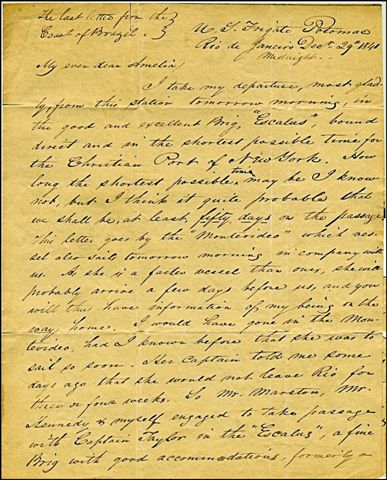 The last letter from the
Coast of Brazil.
U. S. Frigate Potomac
Rio de Janeiro Decr. 29th 1841
Midnight.
My ever dear Amelia,
I take my departure, most glad-
ly, from this station tomorrow morning, in
the good and excellent Brig, "Escalus", bound
direct and in the shortest possible time for
the Christian Port of New York. How
long the shortest possible time may be I know
not, but I think it quite probable that
we shall be, at least, fifty days on the passage.
This letter goes by the "Montevideo" which ves-
sel also sails tomorrow morning in company with
us. As she is a faster vessel than ours, she will
probably arrive a few days before us, and you
will thus have information of my being on the
way home. I would have gone in the Mon-
tevideo, had I known before that she was to
sail so soon. Her Captain told me some
days ago that she would not leave Rio for
three or four weeks. So Mr. Marston, Mr.
Kennedy & myself engaged to take passage
with Captain Taylor in the "Escalus", a fine
Brig with good accommodations, formerly a